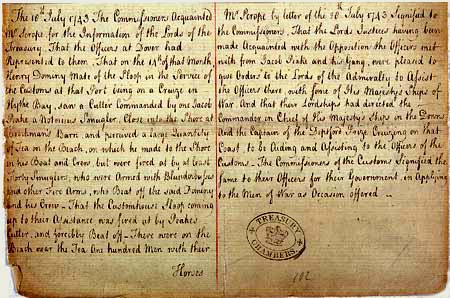 The 18th July 1743 The Commissioners Acquainted
Mr Scrope for the Information of the Lords of the
Treasury. That the Officers at Dover had
Represented to them, That on the 14th of that Month
Henry Dominy Mate of the Sloop in the Service of
the Customs at that Port being on a Cruize in
Hythe Bay, saw a Cutter Commanded by one Jacob
Peake a Notorious Smugler, Close into the Shore at
Barn, and perceived a large Quantity
of Tea on the Beach, on which he made to the Shore
in his Boat and Crew, but were fired at by at least
Forty Smuglers, who were Armed with Blunderbusses
and other Fire Arms, who Beat off the said Dominy
and his Crew – That the Customhouse Sloop coming
up to their Assistance was fired at by Peakes
Cutter, and forcibly Beat off – There were on the
Beach near the Tea One hundred Men with their
Horses
Mr Scrope by letter of the 20th July 1743 Signified to
the Commissioners, That the Lords Justices having been
made Acquainted with the Opposition the Officers met
with from Jacob Peake and his Gang, were pleased to
give Orders to the Lords of the Admiralty to Assist
the Officers there, with some of His Majestys Ships of
War. And that their Lordships had directed the
Commander in Chief of His Majestys Ships in the Downs
And the Captain of the Deptford Prize Cruizing on that
Coast, to be Aiding and Assisting to the Officers of the
Customs – The Commissioners of the Customs Signified the
same to their Officers for their Government, in Applying
to the Men of War as Occasion offered –
TREASURY
CHAMBERS.
102